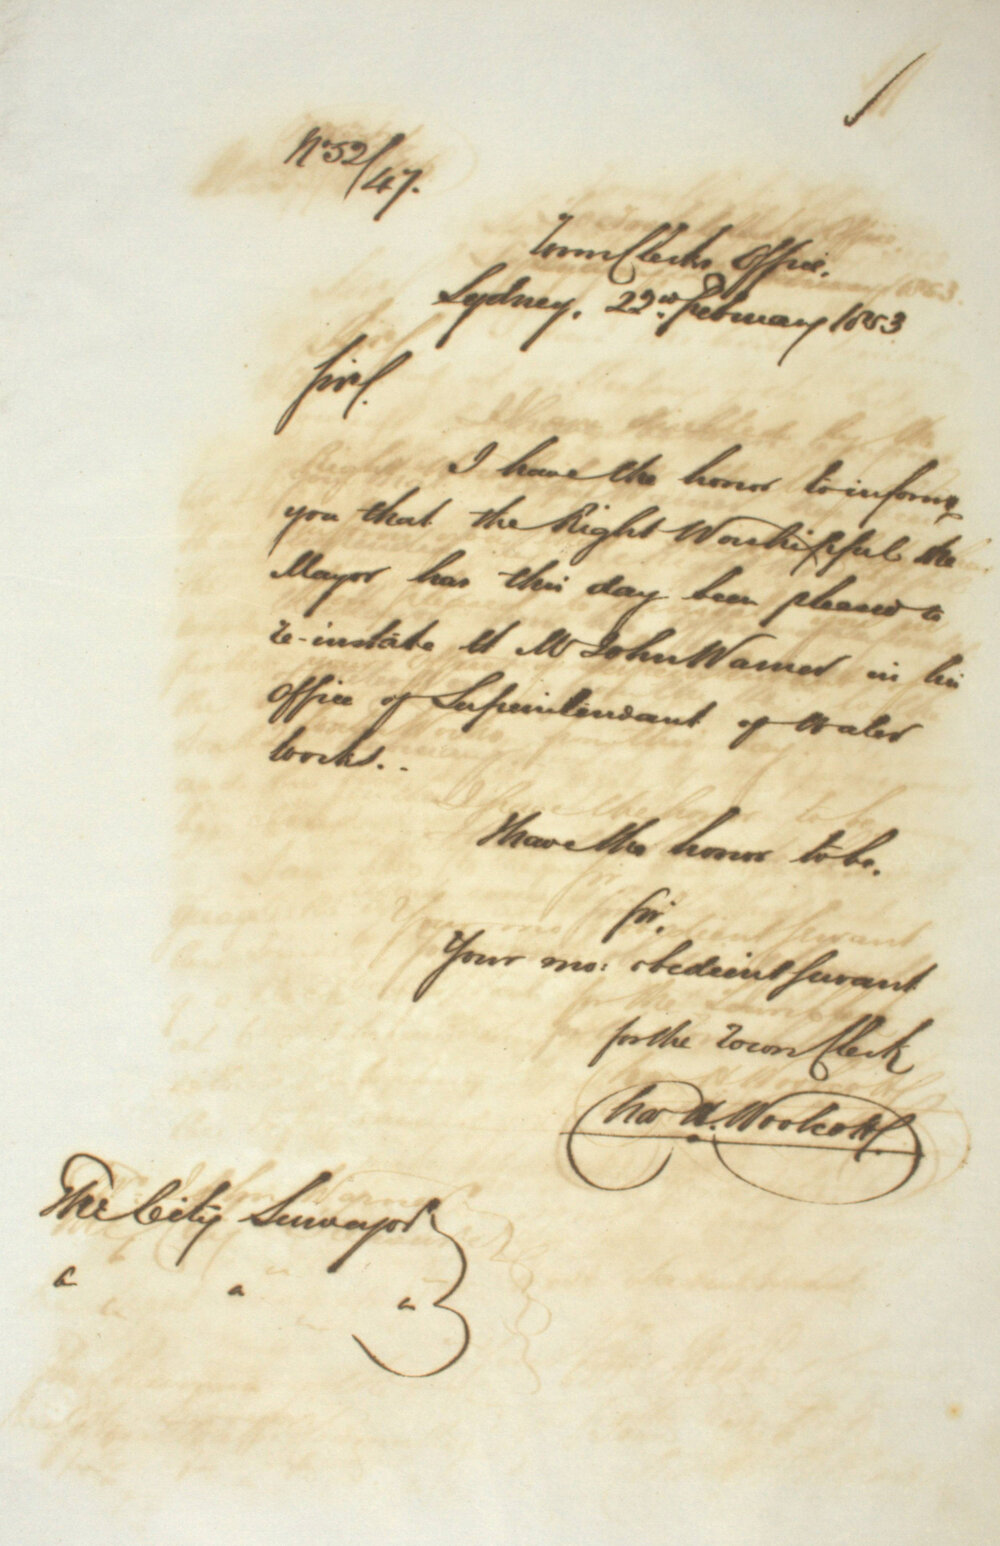 No 52/47.
Town Clerks Office.
Sydney, 22nd February 1853
Sir,
I have the honor to inform
you that the Right Worshipful the
Mayor has this day been pleased to
re-instate Mr John Warner in his
Office of Superintendant of Water
Works..
I have the honor to be.
Sir,
Your mo: obedient Servant
for the Town Clerk
Chas H. Woolcott
The City Surveyor